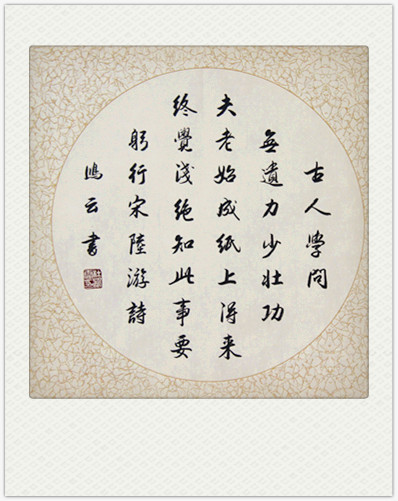 古人學問
無遺力少壯功
夫老始成纸上得来
终覺淺绝知此事要
躬行宋陸游詩
鴻云書